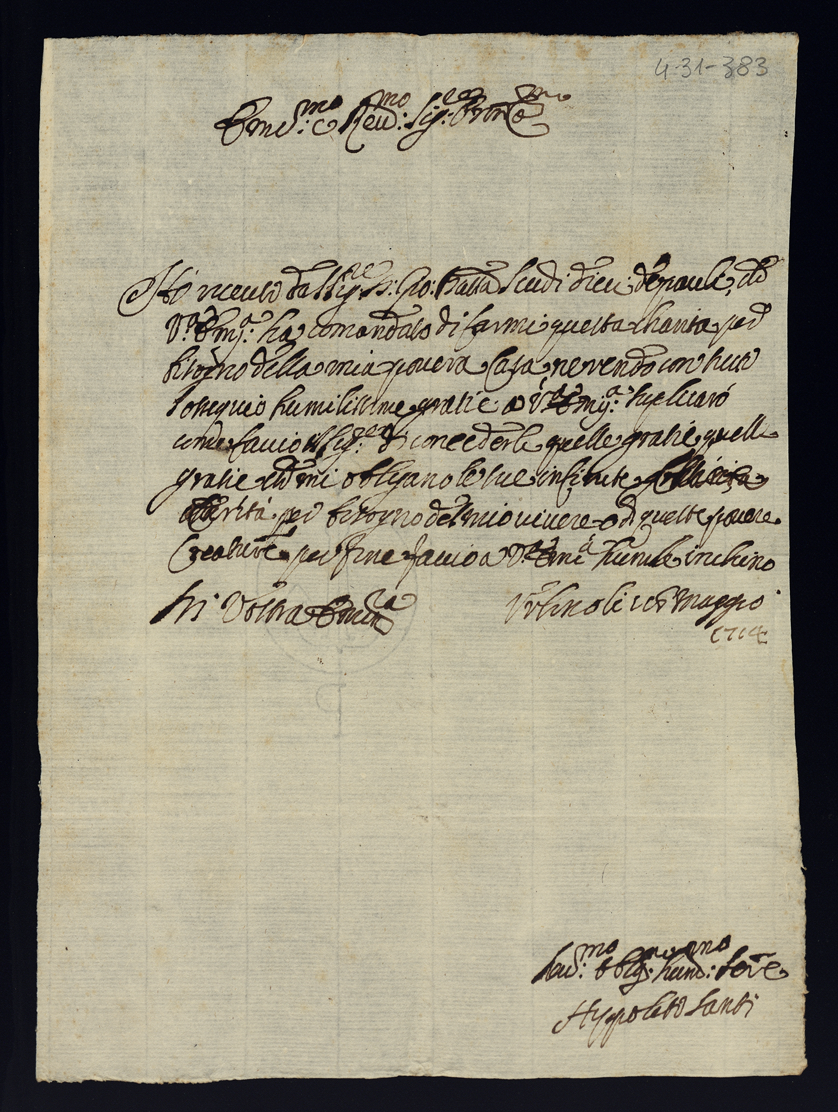 4-31-383
Em:mo e Reu:mo Sig:re
Hò riceuto dal Sig:re D: Gio: Batta Scudi dieci de paoli, che
V:ra Em:a ha comandato di farmi questa charita per
bisogno della mia pouera Casa ne rendo con
ossequio humilissime gratie a V:ra Em:a suplicarò
come faccio il Sig:re di concederle quelle gratie quelle
gratie che mi obligano le sue infinite
carità per bisogno del mio viuere e di queste pouere
Creature per fine faccio a V:ra Em:a humile inchino
Di Vostra Emin:za Vrbino li 16 Maggio
1714
Deu:mo Oblig:mo hum:mo Ser:re
Hypolito Santi